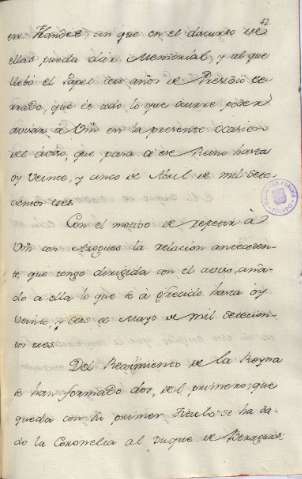 42
en Flandes, sin que en el discurso de
ellas pueda dar Memorial, y al que
llebó el Papel seis años de Presidio ce-
rrado, que es todo lo que ocurre poder
avisar à Vm en la presente ocasion
del aviso, que para à ese Reino hasta
oy veinte, y cinco de Abril de mil sete-
cientos tres.
Con el motivo de repetir à
Vm con Azogues la relacion anteceden-
te, que tengo dirigida con el aviso, aña-
do à ella lo que se à ofrecido hasta oy
veinte, y dos de Mayo de mil setecien-
tos tres.
Del Regimiento de la Reyna
se han formado dos, del primero; que
queda con su primer Titulo se ha da-
do la Coronelia al Duque de Veraguas;